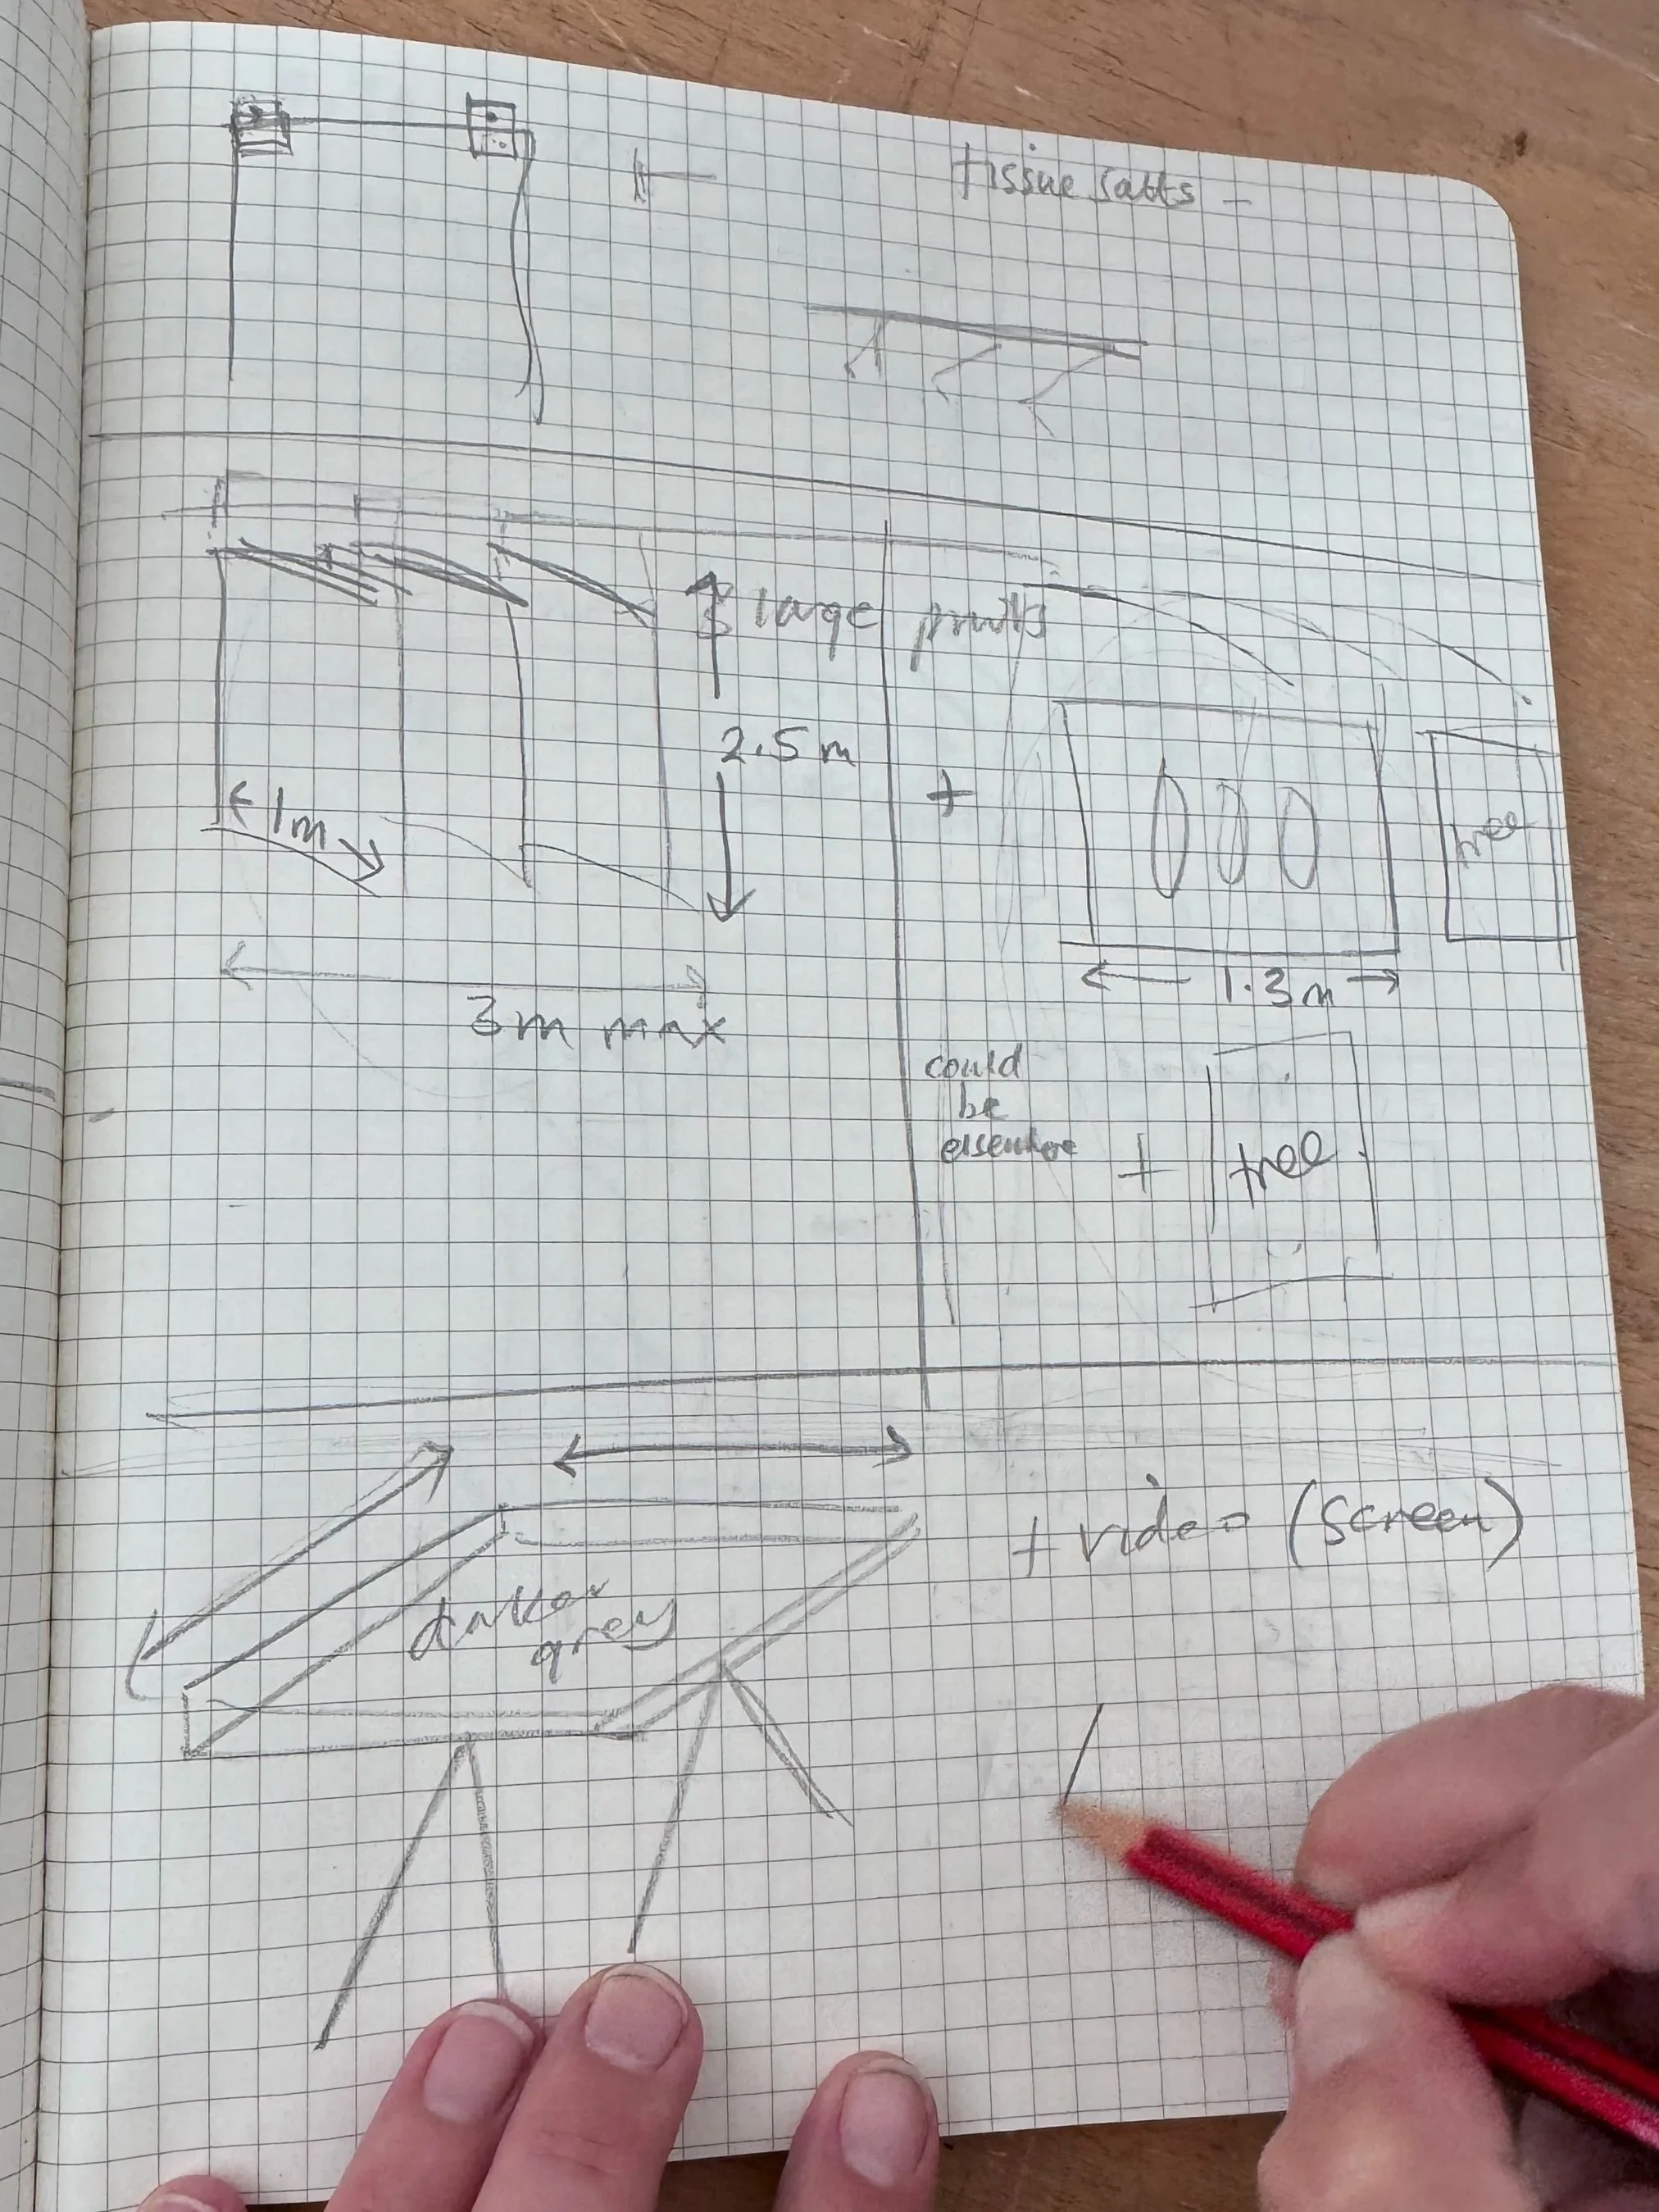 tissue
3 large prints
2.5 m
1m
3m max
+
tree
1.3m
could
be
elsewhere
+ tree
darker
grey
+ video (screen)